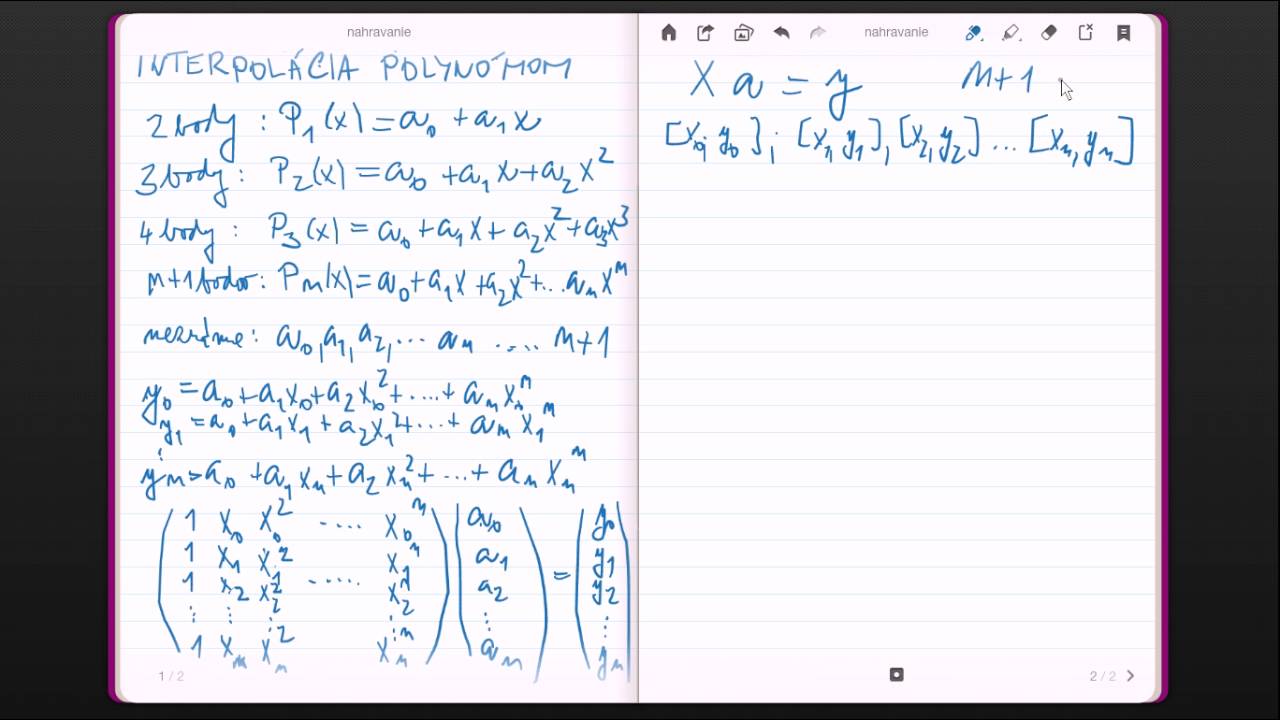 nahravanie
INTERPOLÁCIA POLYNÓMOM
2 body : P₁(x) = a₀ + a₁x
3 body : P₂(x) = a₀ + a₁x + a₂x²
4 body : P₃(x) = a₀ + a₁x + a₂x² + a₃x³
n+1 bodov : Pₙ(x) = a₀ + a₁x + a₂x² + ... aₙxⁿ
neznáme : a₀, a₁, a₂, ... aₙ .... n+1
y₀ = a₀ + a₁x₀ + a₂x₀² + .... + aₙx₀ⁿ
y₁ = a₀ + a₁x₁ + a₂x₁² + ... + aₙx₁ⁿ
⋮
yₙ = a₀ + a₁xₙ + a₂xₙ² + ... + aₙxₙⁿ
1 x₀ x₀² .... x₀ⁿ a₀ y₀
1 x₁ x₁² x₁ⁿ a₁ y₁
1 x₂ x₂² ..... x₂ⁿ a₂ = y₂
⋮ ⋮ ⋮ ⋮ ⋮ ⋮
1 xₙ xₙ² xₙⁿ aₙ yₙ
1 / 2
nahravanie
X a = y n+1
[x₀, y₀] ; [x₁, y₁], [x₂, y₂] ... [xₙ, yₙ]
2 / 2